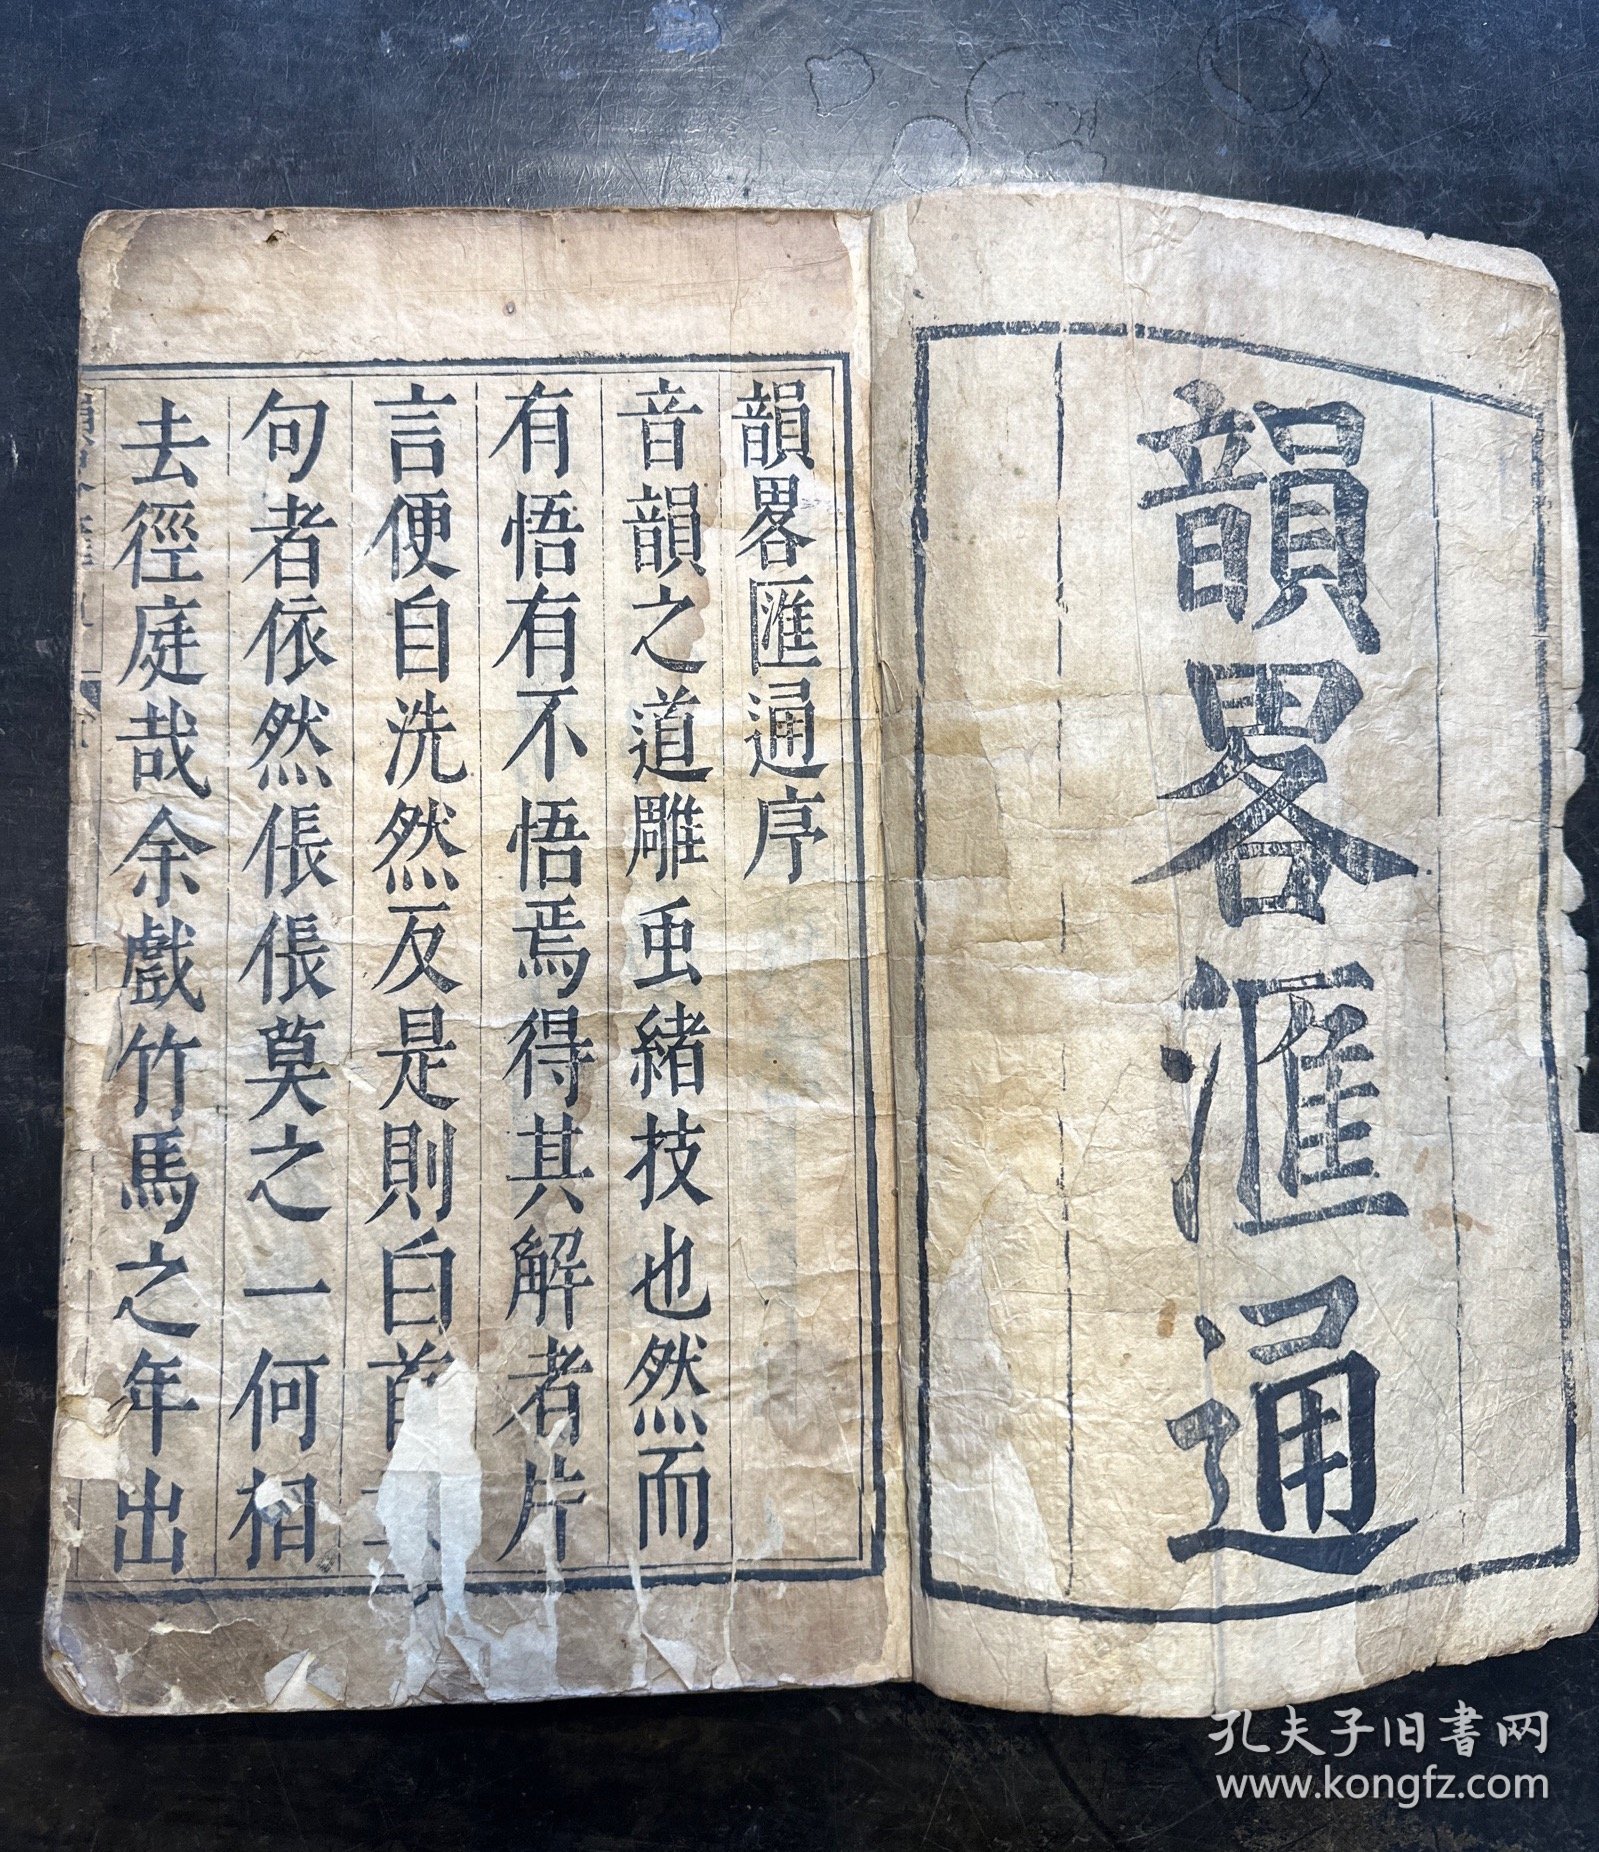 韻畧滙通
韻畧滙通序
音韻之道雕虫緒技也然而
有悟有不悟焉得其解者片
言便自洗然反是則白首
句者依然倀倀莫之一何相
去徑庭哉余戲竹馬之年出
孔夫子旧書网
www.kongfz.com